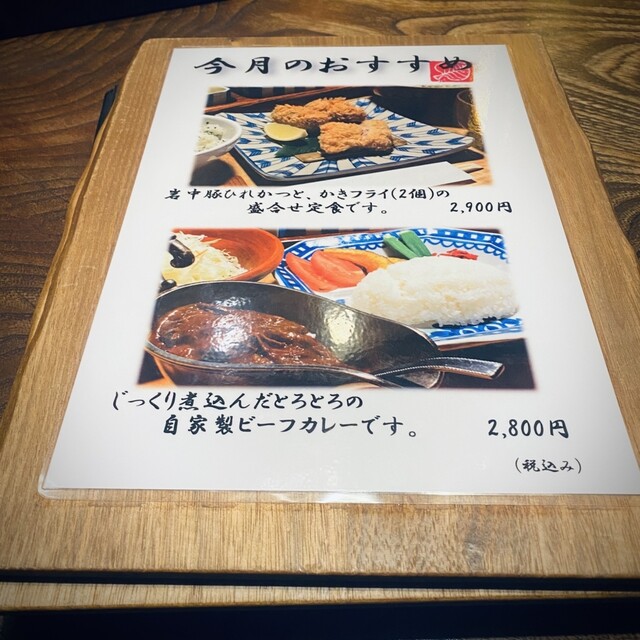 今月のおすすめ
岩中豚ひれかつと、かきフライ(2個)の
盛合せ定食です。 2,900円
じっくり煮込んだとろとろの
自家製ビーフカレーです。 2,800円
(税込み)